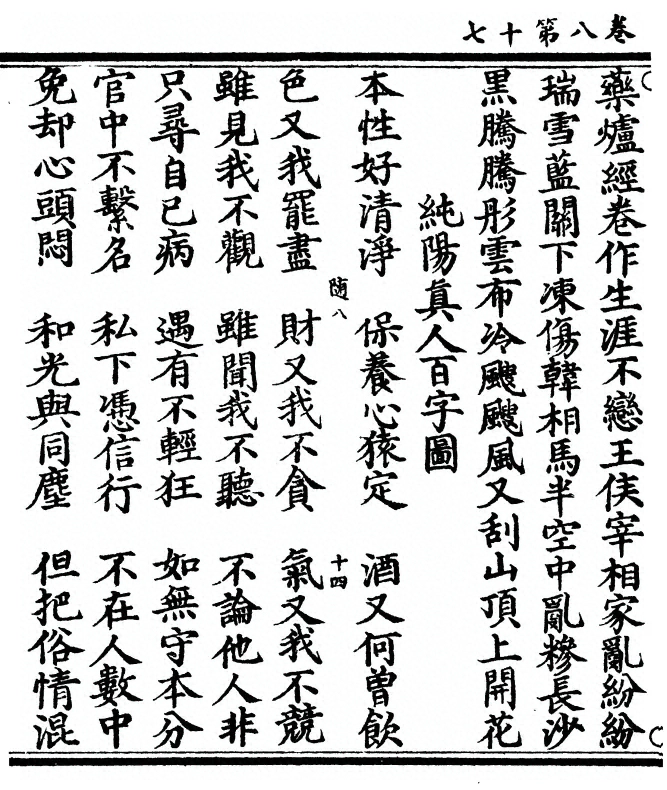 卷八第十七
藥爐經卷作生涯不戀王侯宰相家亂紛紛
瑞雪藍關下凍傷韓相馬半空中亂糝長沙
黑騰騰彤雲布冷颼颼風又刮山頂上開花
純陽真人百字圖
本性好清淨 保養心猿定 酒又何曾飲
随八 十四
色又我罷盡 財又我不貪 氣又我不競
雖見我不觀 雖聞我不聽 不論他人非
只尋自己病 遇有不輕狂 如無守本分
官中不繫名 私下憑信行 不在人數中
免却心頭悶 和光與同塵 但把俗情混